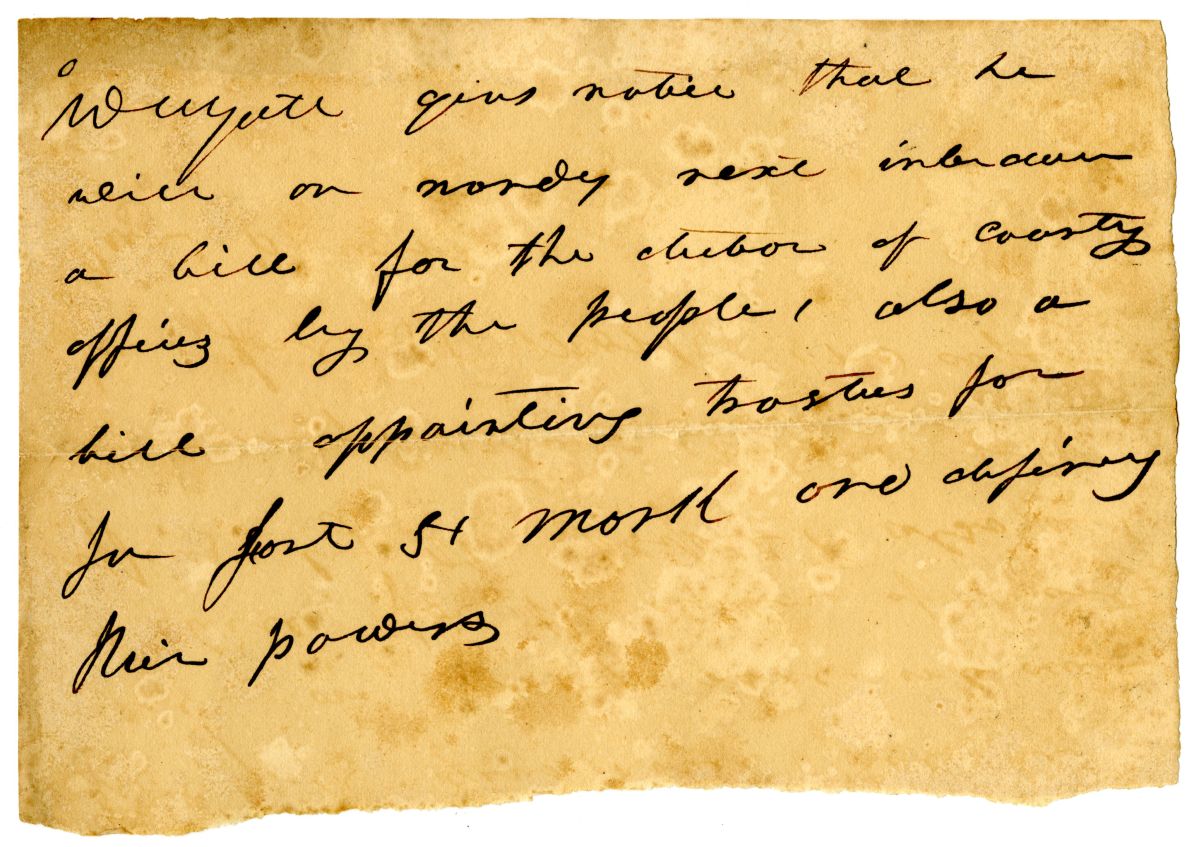 Wyatt gives notice that he
will on monday next introduce
a bill for the election of county
offices by the people, also a
bill appointing trustes for
for fort St Mark and defining
their powers